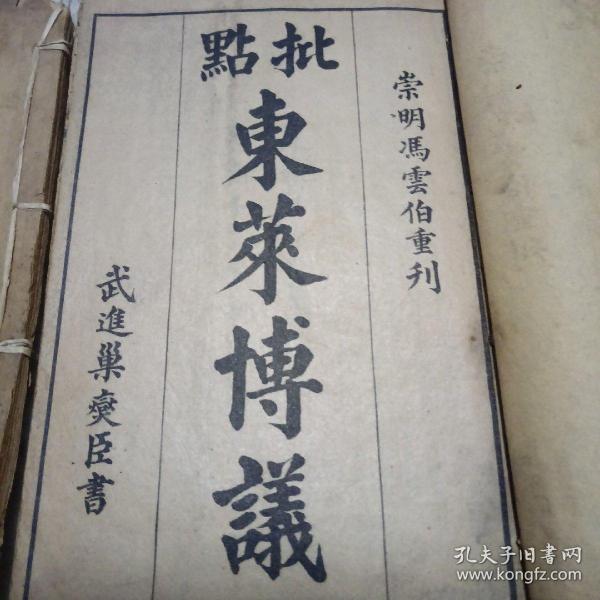 崇明馮雲伯重刊
批點
東萊博議
武進巢奠臣書
孔夫子旧书网
www.kongfz.com